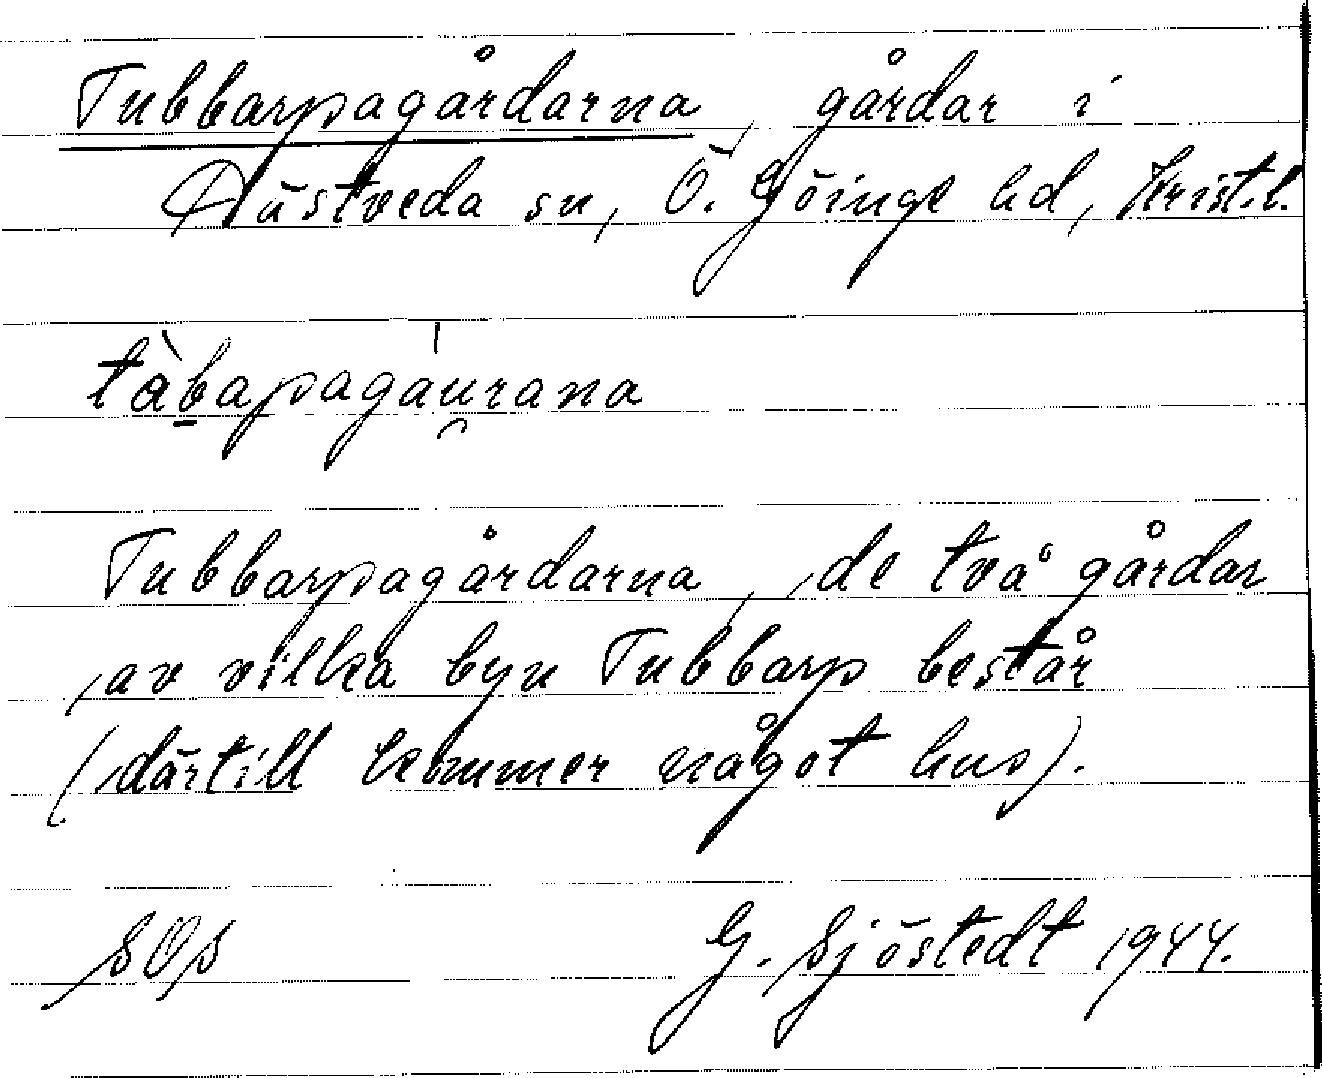 Tubbarpagårdarna, gårdar i
Östveda sn, Ö. Göinge hd, Krist.l.
tàb̲apagáu̯rana
Tubbarpagårdarna, de två gårdar
av vilka byn Tubbarp består
(därtill kommer något hus).
SOS
G. Sjöstedt 1944.